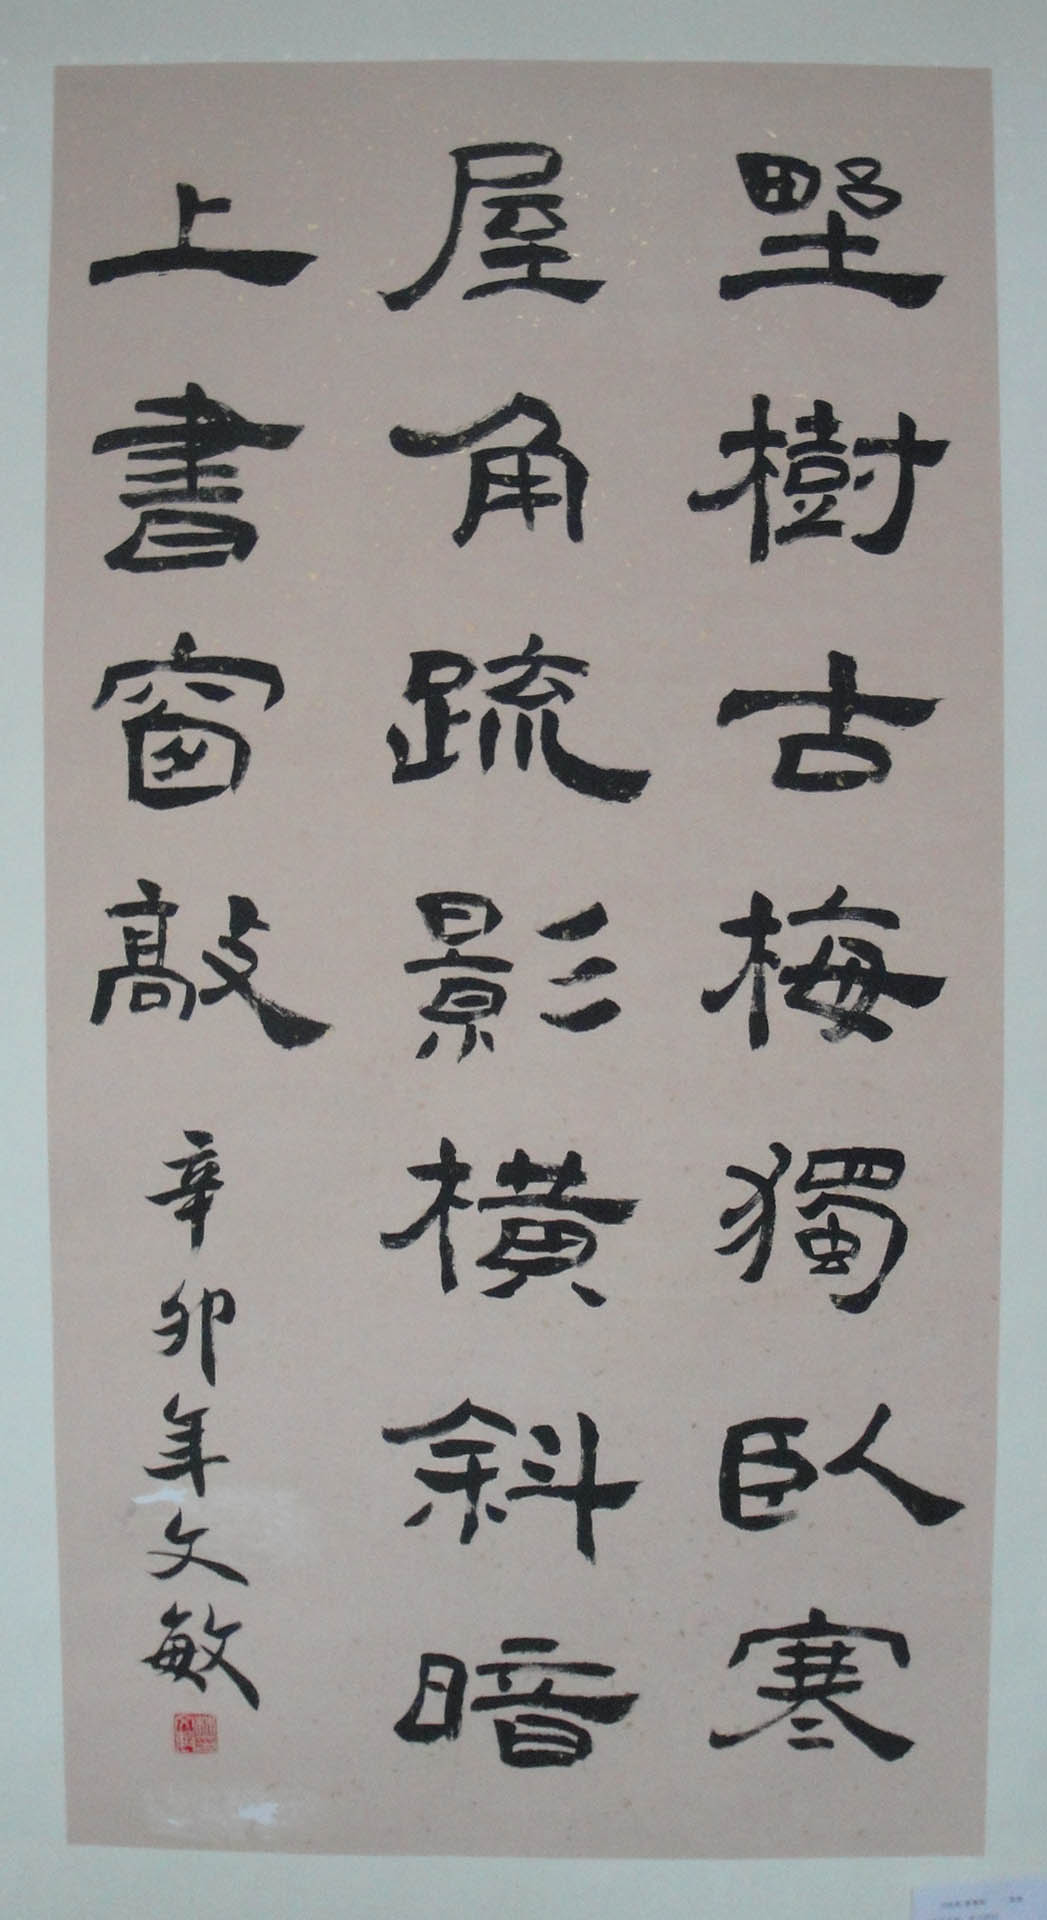 野樹古梅獨臥寒
屋角疏影橫斜暗
上書窗敲
辛卯年文敏